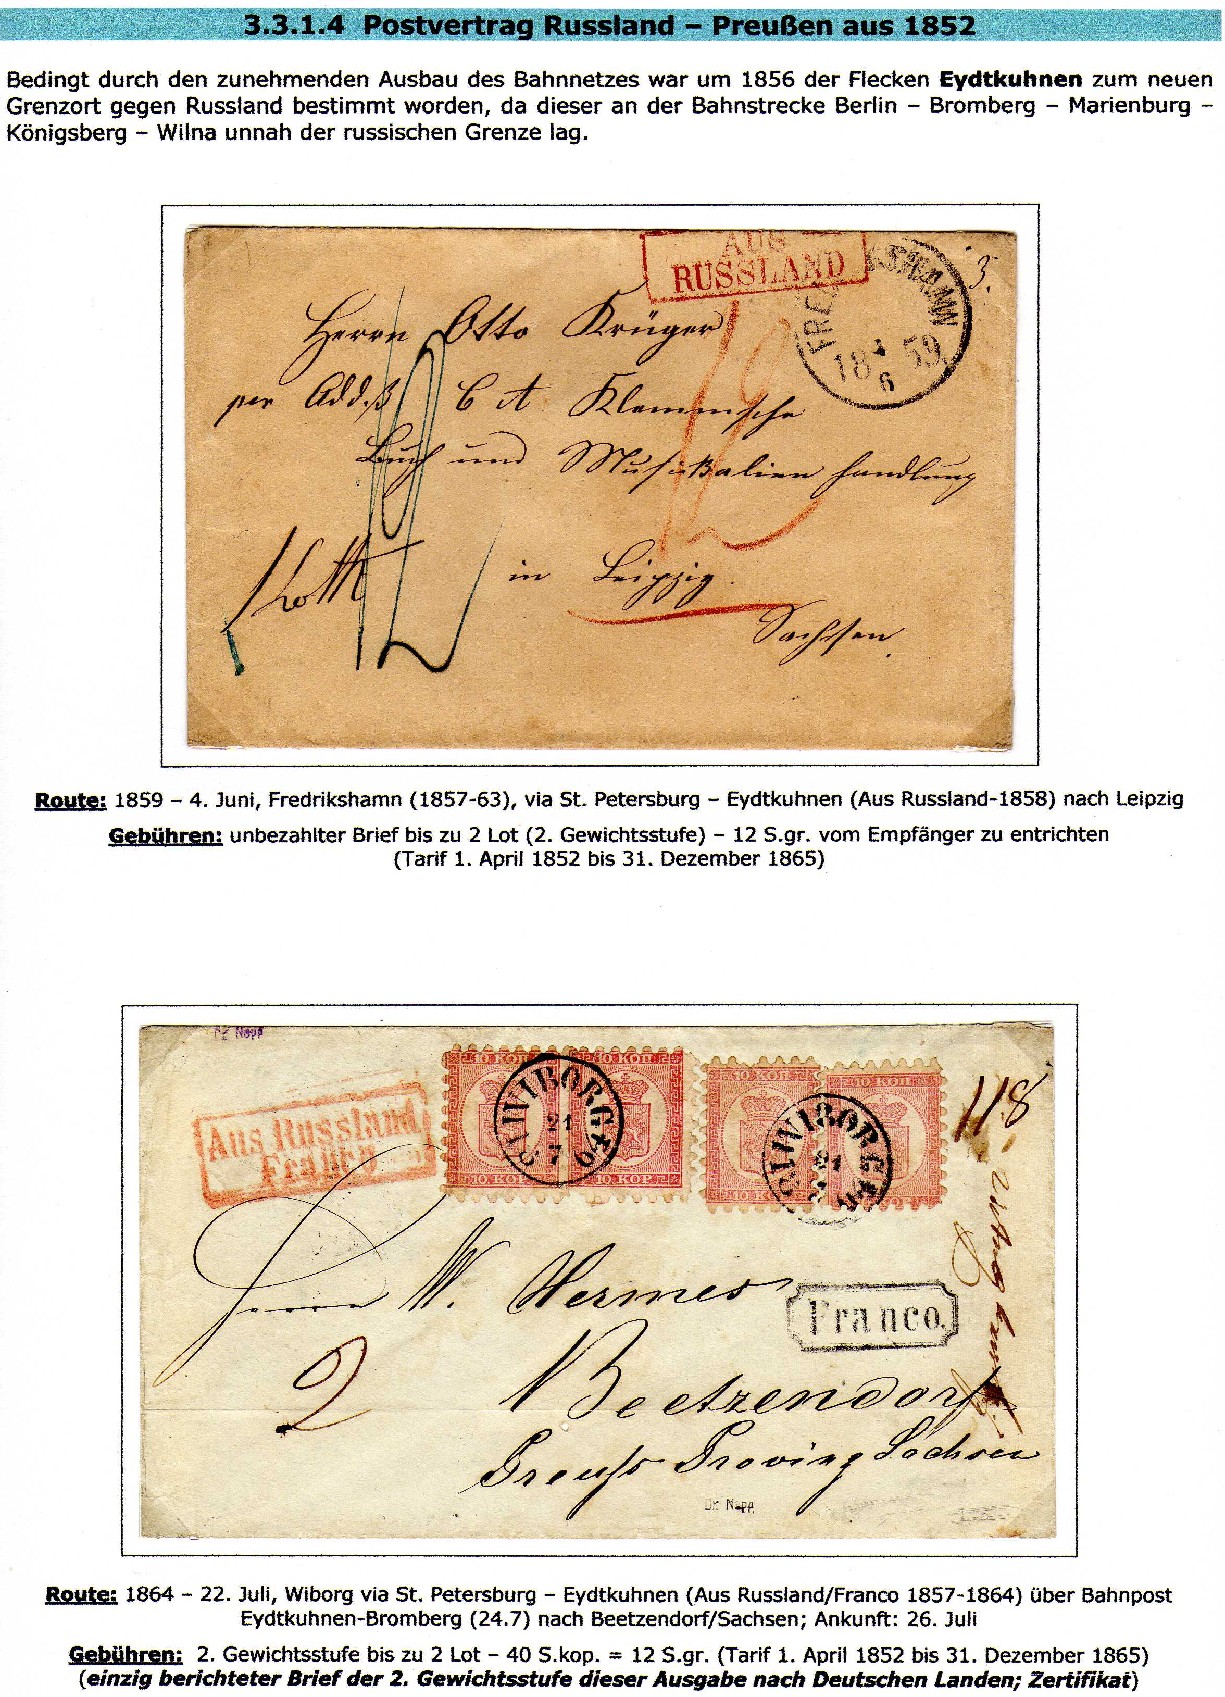 3.3.1.4 Postvertrag Russland – Preußen aus 1852
Bedingt durch den zunehmenden Ausbau des Bahnnetzes war um 1856 der Flecken Eydtkuhnen zum neuen
Grenzort gegen Russland bestimmt worden, da dieser an der Bahnstrecke Berlin – Bromberg – Marienburg –
Königsberg – Wilna unnah der russischen Grenze lag.
AUS
RUSSLAND
3.
Herrn Otto Krüger
18 4 59
6
per Addß C A Klemmsche
Buch und Musikalien handlung
1 Loth
12
in Leipzig.
Sachsen.
Route: 1859 – 4. Juni, Fredrikshamn (1857-63), via St. Petersburg – Eydtkuhnen (Aus Russland-1858) nach Leipzig
Gebühren: unbezahlter Brief bis zu 2 Lot (2. Gewichtsstufe) – 12 S.gr. vom Empfänger zu entrichten
(Tarif 1. April 1852 bis 31. Dezember 1865)
10 КОП 10 КОП 10 КОП 10 КОП
WIBORG
21
7
WIBORG
21
10 KOP. 10 KOP. 10 KOP.
118
Aus Russland
Franco
Herrn W. Hermes
Franco.
2
Beetzendorf
Preuss Provinz Sachsen
Dr. Napp
Route: 1864 – 22. Juli, Wiborg via St. Petersburg – Eydtkuhnen (Aus Russland/Franco 1857-1864) über Bahnpost
Eydtkuhnen-Bromberg (24.7) nach Beetzendorf/Sachsen; Ankunft: 26. Juli
Gebühren: 2. Gewichtsstufe bis zu 2 Lot – 40 S.kop. = 12 S.gr. (Tarif 1. April 1852 bis 31. Dezember 1865)
(einzig berichteter Brief der 2. Gewichtsstufe dieser Ausgabe nach Deutschen Landen; Zertifikat)